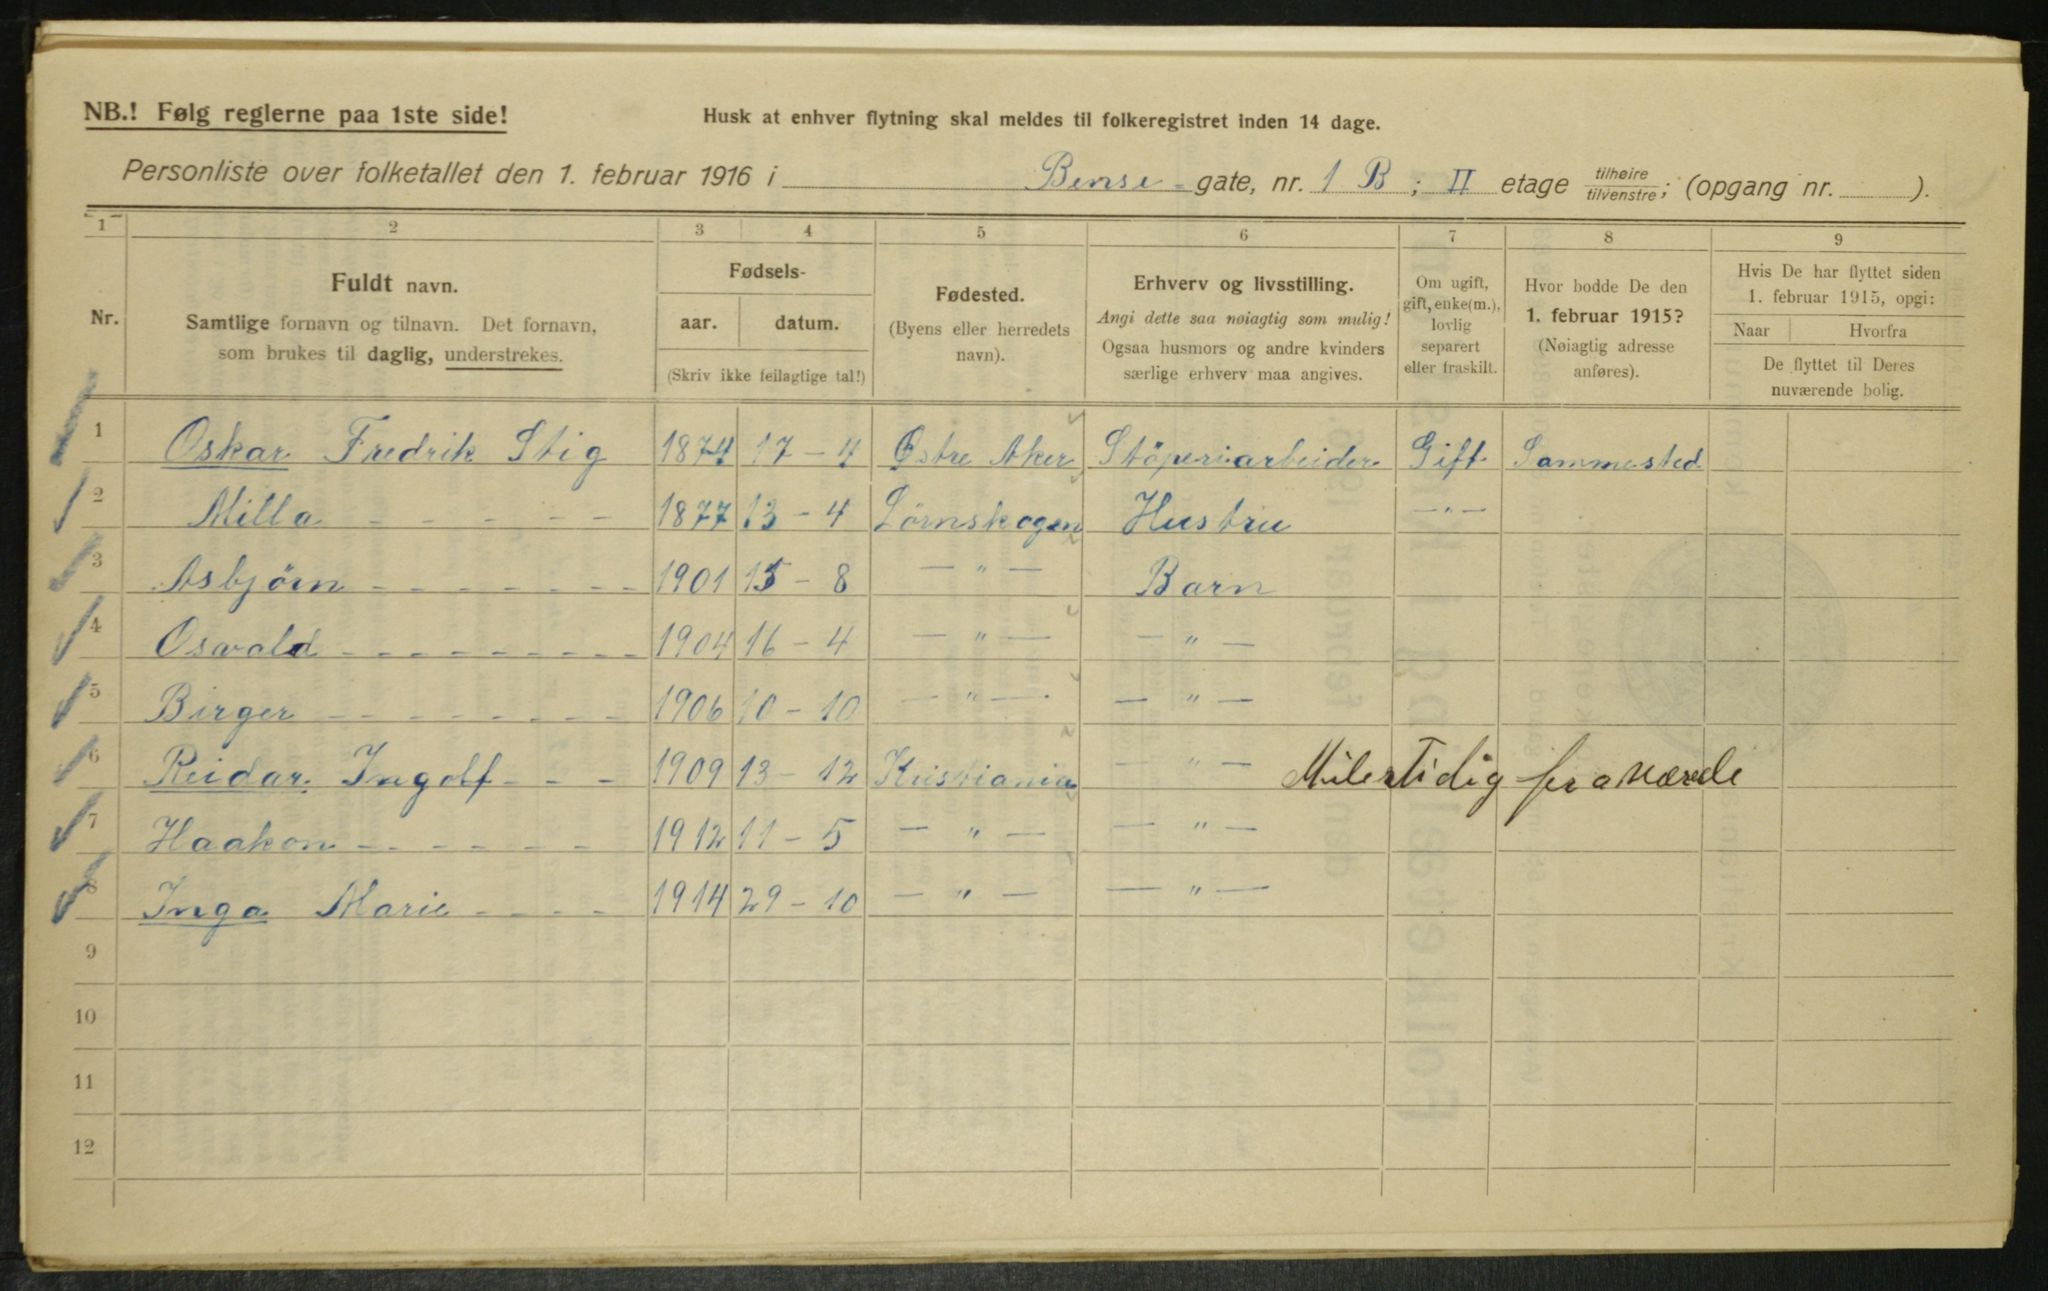 NB.! Følg reglerne paa 1ste side!
Husk at enhver flytning skal meldes til folkeregistret inden 14 dage.
Personliste over folketallet den 1. februar 1916 i Bense-gate, nr. 1 B; II etage tilhøire/tilvenstre; (opgang nr. ).
1 2 3 4 5 6 7 8 9
Nr.
Fuldt navn.
Samtlige fornavn og tilnavn. Det fornavn,
som brukes til daglig, understrekes.
Fødsels-
aar. datum.
(Skriv ikke feilagtige tal!)
Fødested.
(Byens eller herredets
navn).
Erhverv og livsstilling.
Angi dette saa nøiagtig som mulig!
Ogsaa husmors og andre kvinders
særlige erhverv maa angives.
Om ugift,
gift, enke(m.),
lovlig
separert
eller fraskilt.
Hvor bodde De den
1. februar 1915?
(Nøiagtig adresse
anføres).
Hvis De har flyttet siden
1. februar 1915, opgi:
Naar Hvorfra
De flyttet til Deres
nuværende bolig.
1 Oskar Fredrik Stig 1874 17-4 Østre Aker Stöperiarbeider Gift Sammested
2 Milla - - - - - 1877 13-4 Lørnskogen Hustru —"—
3 Asbjørn - - - - - - - 1901 15-8 —"— Barn
4 Osvald - - - - - - - - - 1904 16-4 —"— —"—
5 Birger - - - - - - - - 1906 10-10 —"— —"—
6 Reidar Ingolf - - - 1909 13-12 Kristiania —"— Milertidig fraværde
7 Haakon - - - - - - 1912 11-5 —"— —"—
8 Inga Marie - - - - 1914 29-10 —"— —"—
9
10
11
12